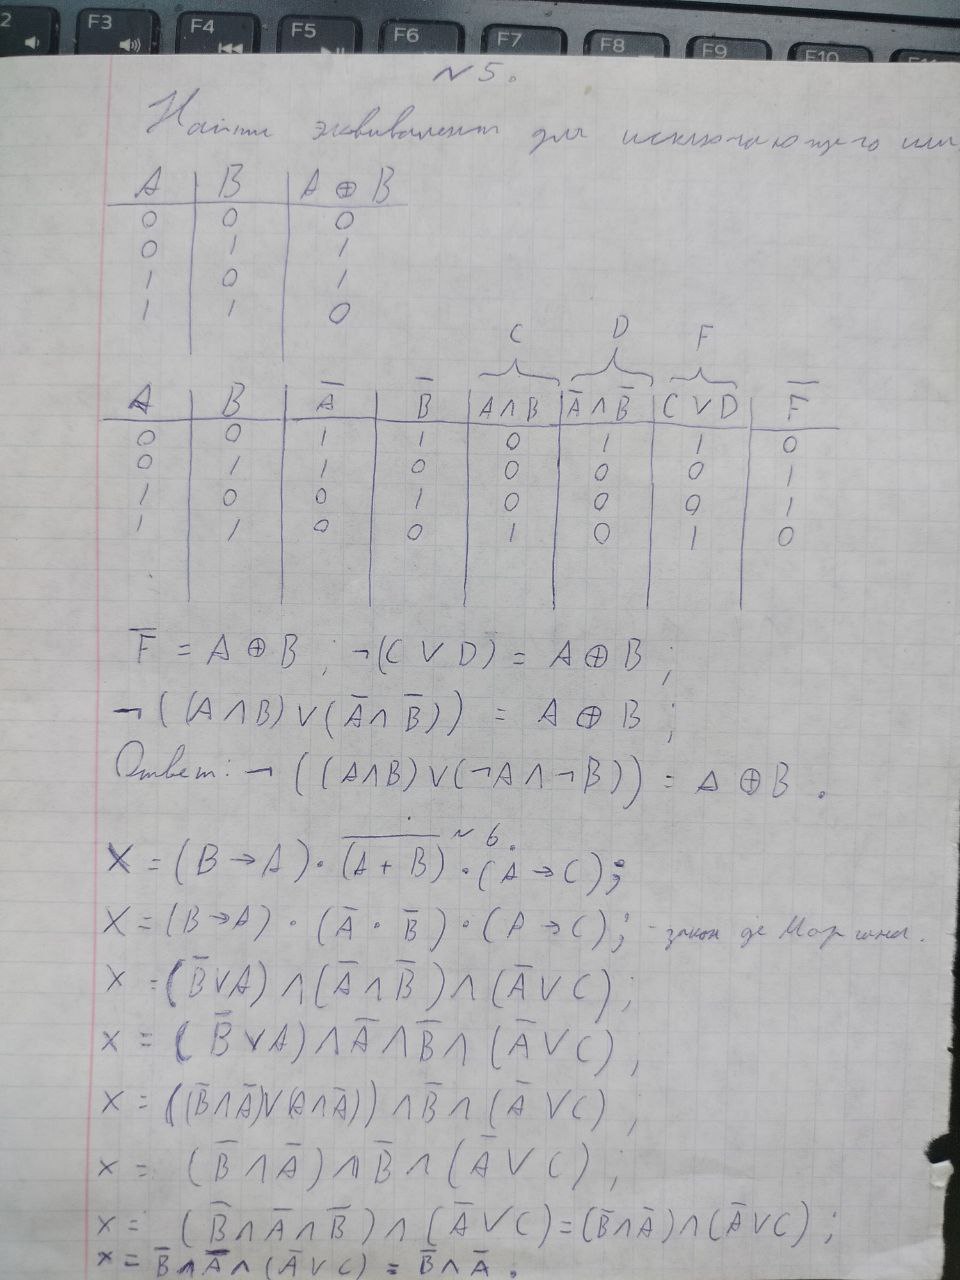 F3 F4 F5 F6 F7 F8 F9 F10
N 5.
Найти эквивалент для исключающего или
A | B | A ⊕ B
0 | 0 | 0
0 | 1 | 1
1 | 0 | 1
1 | 1 | 0
C D F
A | B | A̅ | B̅ | A∧B | A̅∧B̅ | C∨D | F̅
0 | 0 | 1 | 1 | 0 | 1 | 1 | 0
0 | 1 | 1 | 0 | 0 | 0 | 0 | 1
1 | 0 | 0 | 1 | 0 | 0 | 0 | 1
1 | 1 | 0 | 0 | 1 | 0 | 1 | 0
F̅ = A ⊕ B ; ¬(C ∨ D) = A ⊕ B ;
¬((A∧B)∨(A̅∧B̅)) = A ⊕ B ;
Ответ: ¬((A∧B)∨(¬A∧¬B)) = A ⊕ B .
N 6.
X = (B→A)·\overline{(A + B)}·(A→C);
X = (B→A)·(A̅·B̅)·(A→C); - закон де Моргана.
X = (B̅∨A)∧(A̅∧B̅)∧(A̅∨C);
X = (B̅∨A)∧A̅∧B̅∧(A̅∨C);
X = ((B̅∧A̅)∨(A∧A̅))∧B̅∧(A̅∨C);
X = (B̅∧A̅)∧B̅∧(A̅∨C);
X = (B̅∧A̅∧B̅)∧(A̅∨C)=(B̅∧A̅)∧(A̅∨C);
X = B̅∧A̅∧(A̅∨C) = B̅∧A̅.